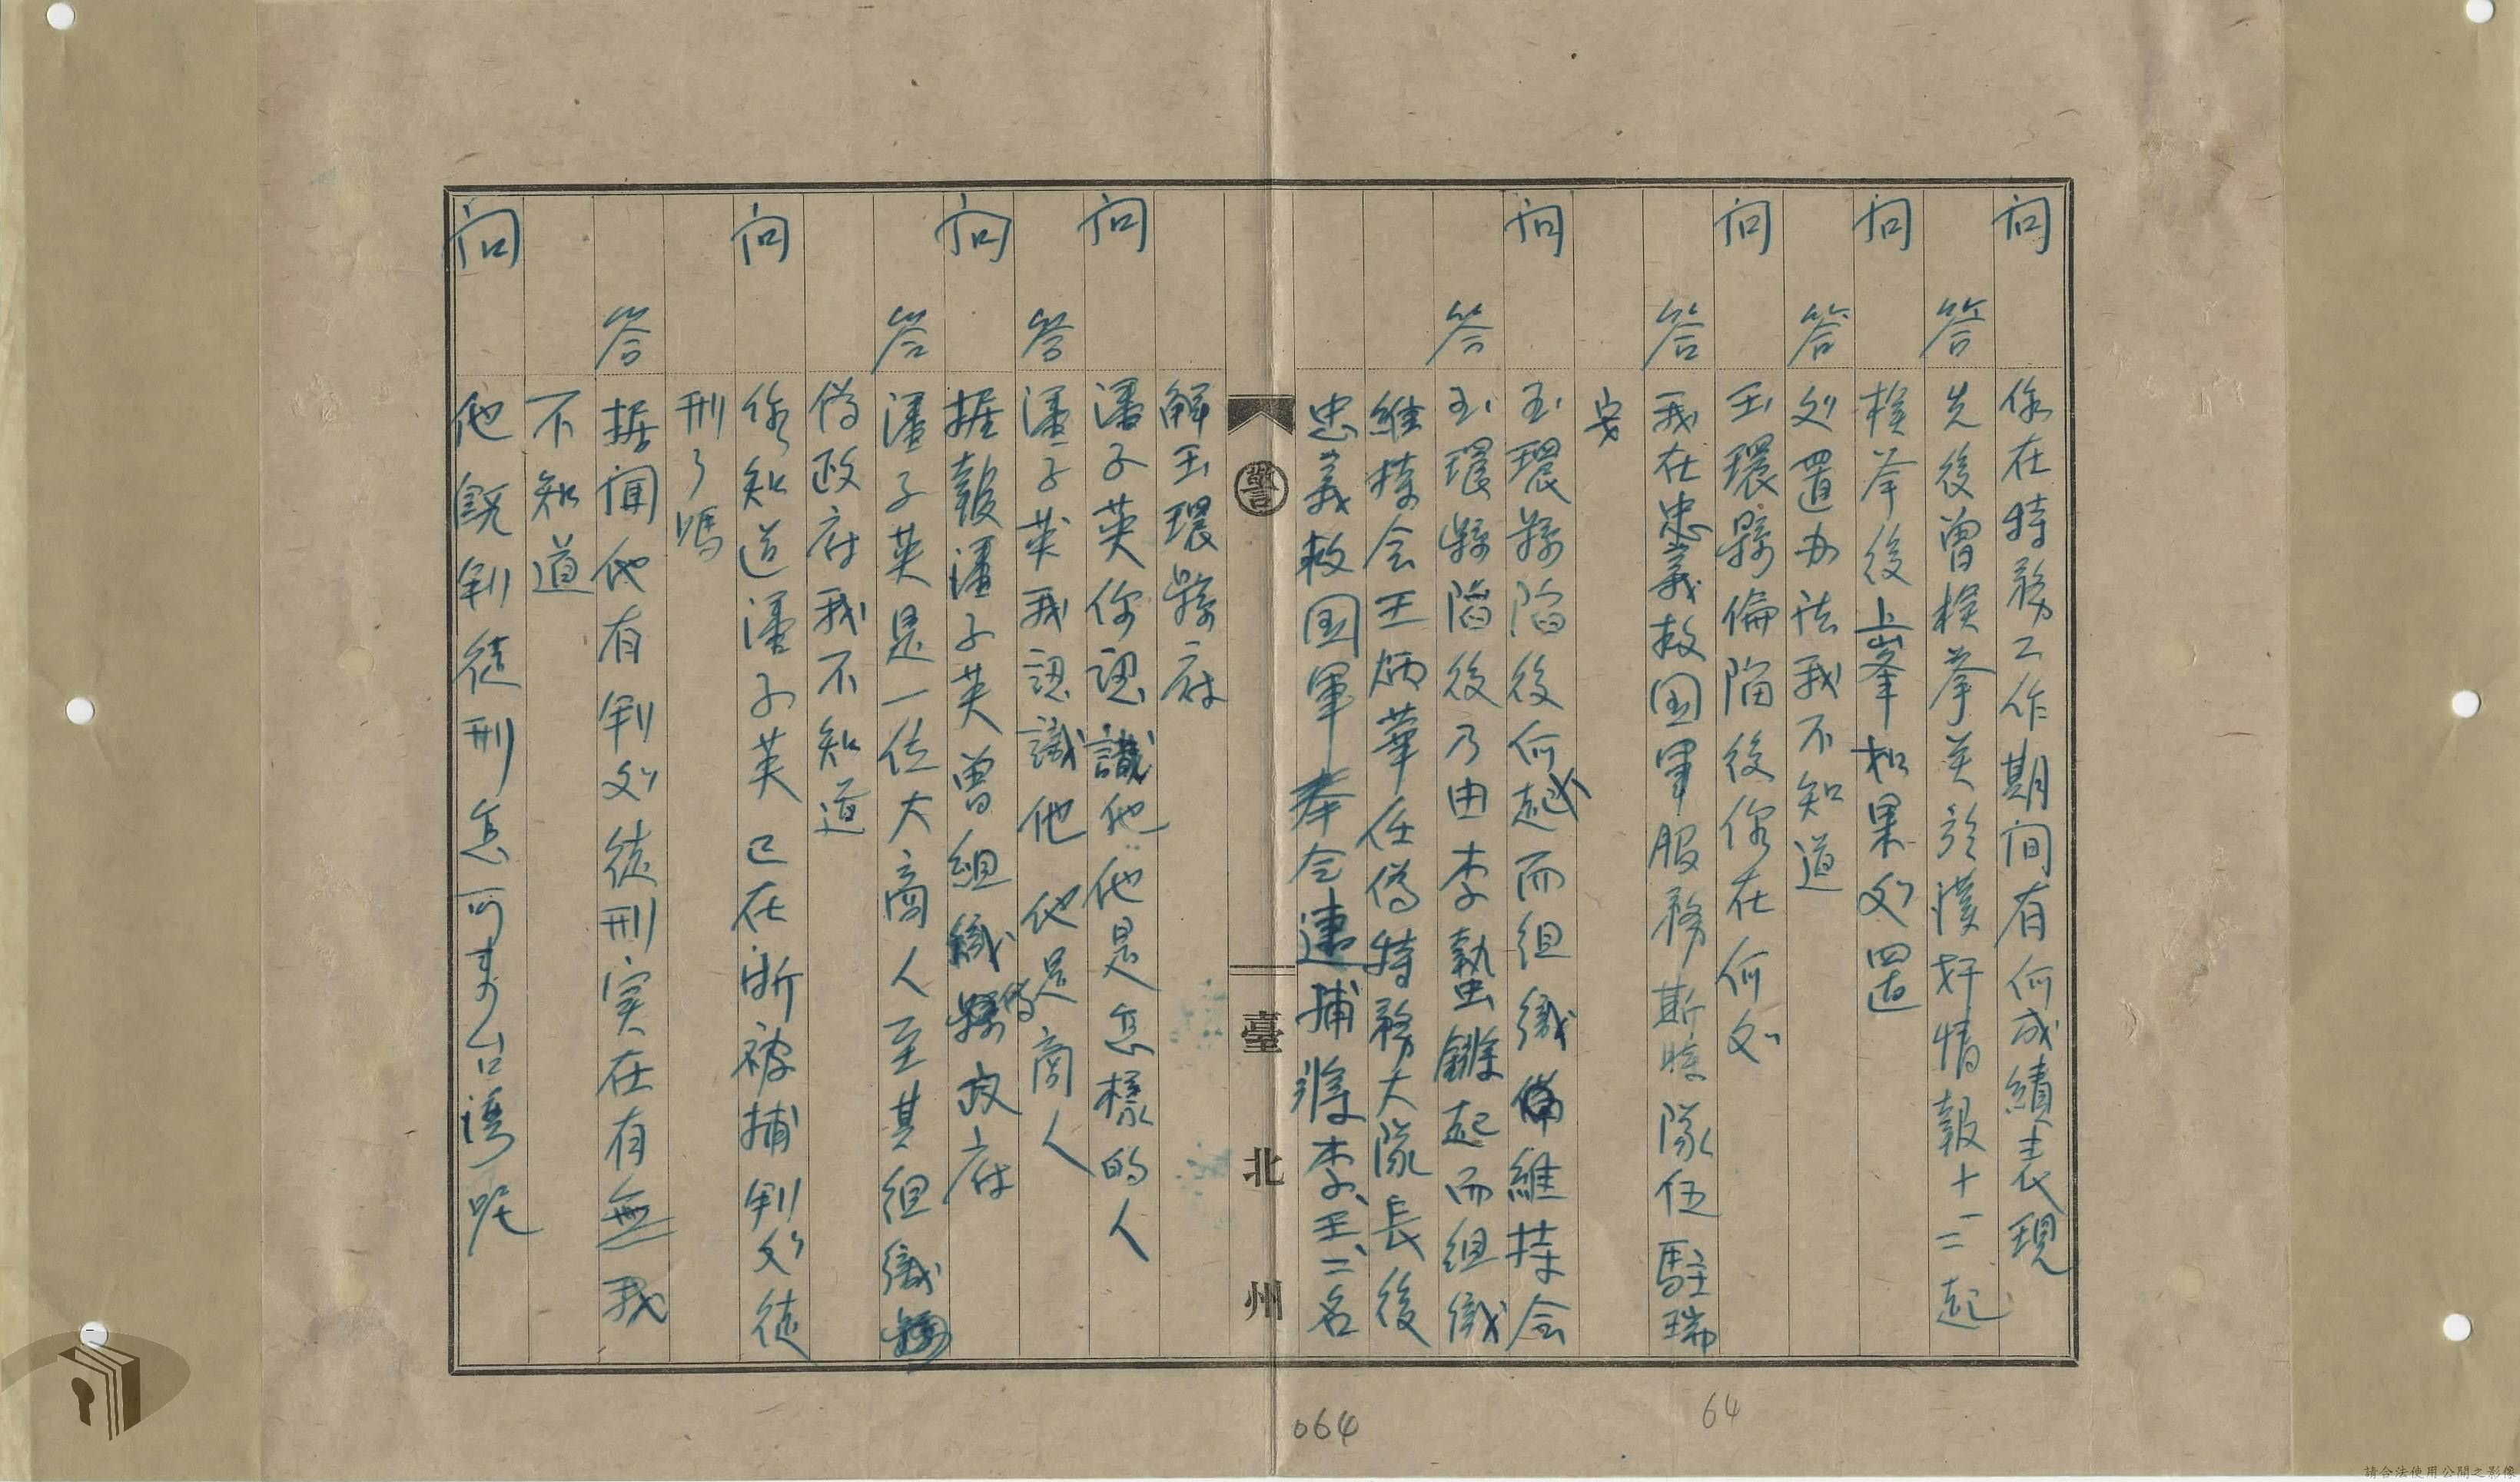 问 你在特務工作期间有何成績表現
答 先後曾檢举英於漢奸情報十二三起
问 檢举後上峯如果処置
答 処置办法我不知道
问 玉環縣倫陷後你在何処
答 我在忠義救国軍服務斯時隊伍駐瑞
安
问 玉環縣陷後何人起而組織偽維持会
答 玉環縣陷後乃由李蟄雛起而組織
維持会王炳華任偽特務大隊長後
忠義救国軍奉令逮捕將李王二名
警 臺北州
解玉環縣府
问 潘子英你認識他他是怎樣的人
答 潘子英我認識他 他是商人
问 据報潘子英曾組織偽縣政府
答 潘子英是一位大商人至其組織
偽政府我不知道
问 你知道潘子英已在浙被捕判処徒
刑了嗎
答 据闻他有判処徒刑实在有無我
不知道
问 他既判徒刑怎可来台湾呢
064
64
請合法使用公開之影像